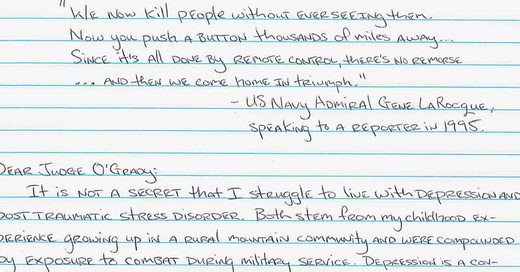 "We now kill people without ever seeing them.
Now you push a button thousands of miles away...
Since it's all done by remote control, there's no remorse
... and then we come home in triumph."
- US Navy Admiral Gene LaRocque,
speaking to a reporter in 1995.
Dear Judge O'Grady:
It is not a secret that I struggle to live with depression and
post traumatic stress disorder. Both stem from my childhood ex-
perience growing up in a rural mountain community and were compounded
by exposure to combat during military service. Depression is a con-